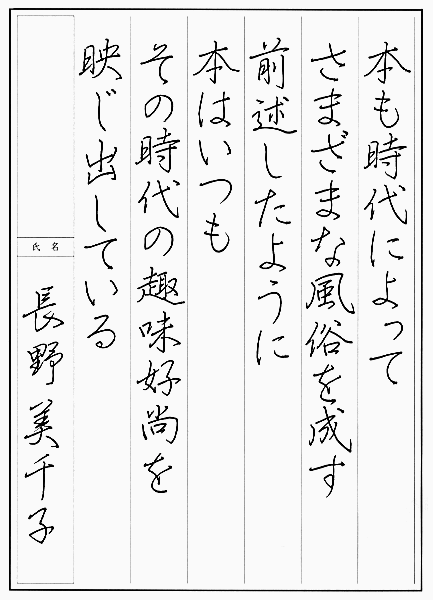 本も時代によって
さまざまな風俗を成す
前述したように
本はいつも
その時代の趣味好尚を
映じ出している
氏名
長野美千子